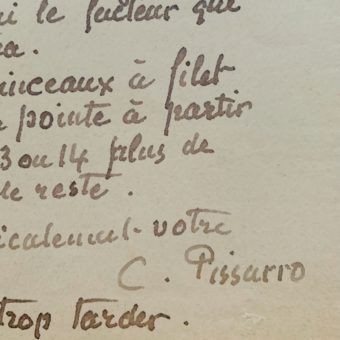 le facteur que
pinceaux à filet
pointe à partir
3 ou 14 plus de
reste.
votre
C. Pissarro
trop tarder.